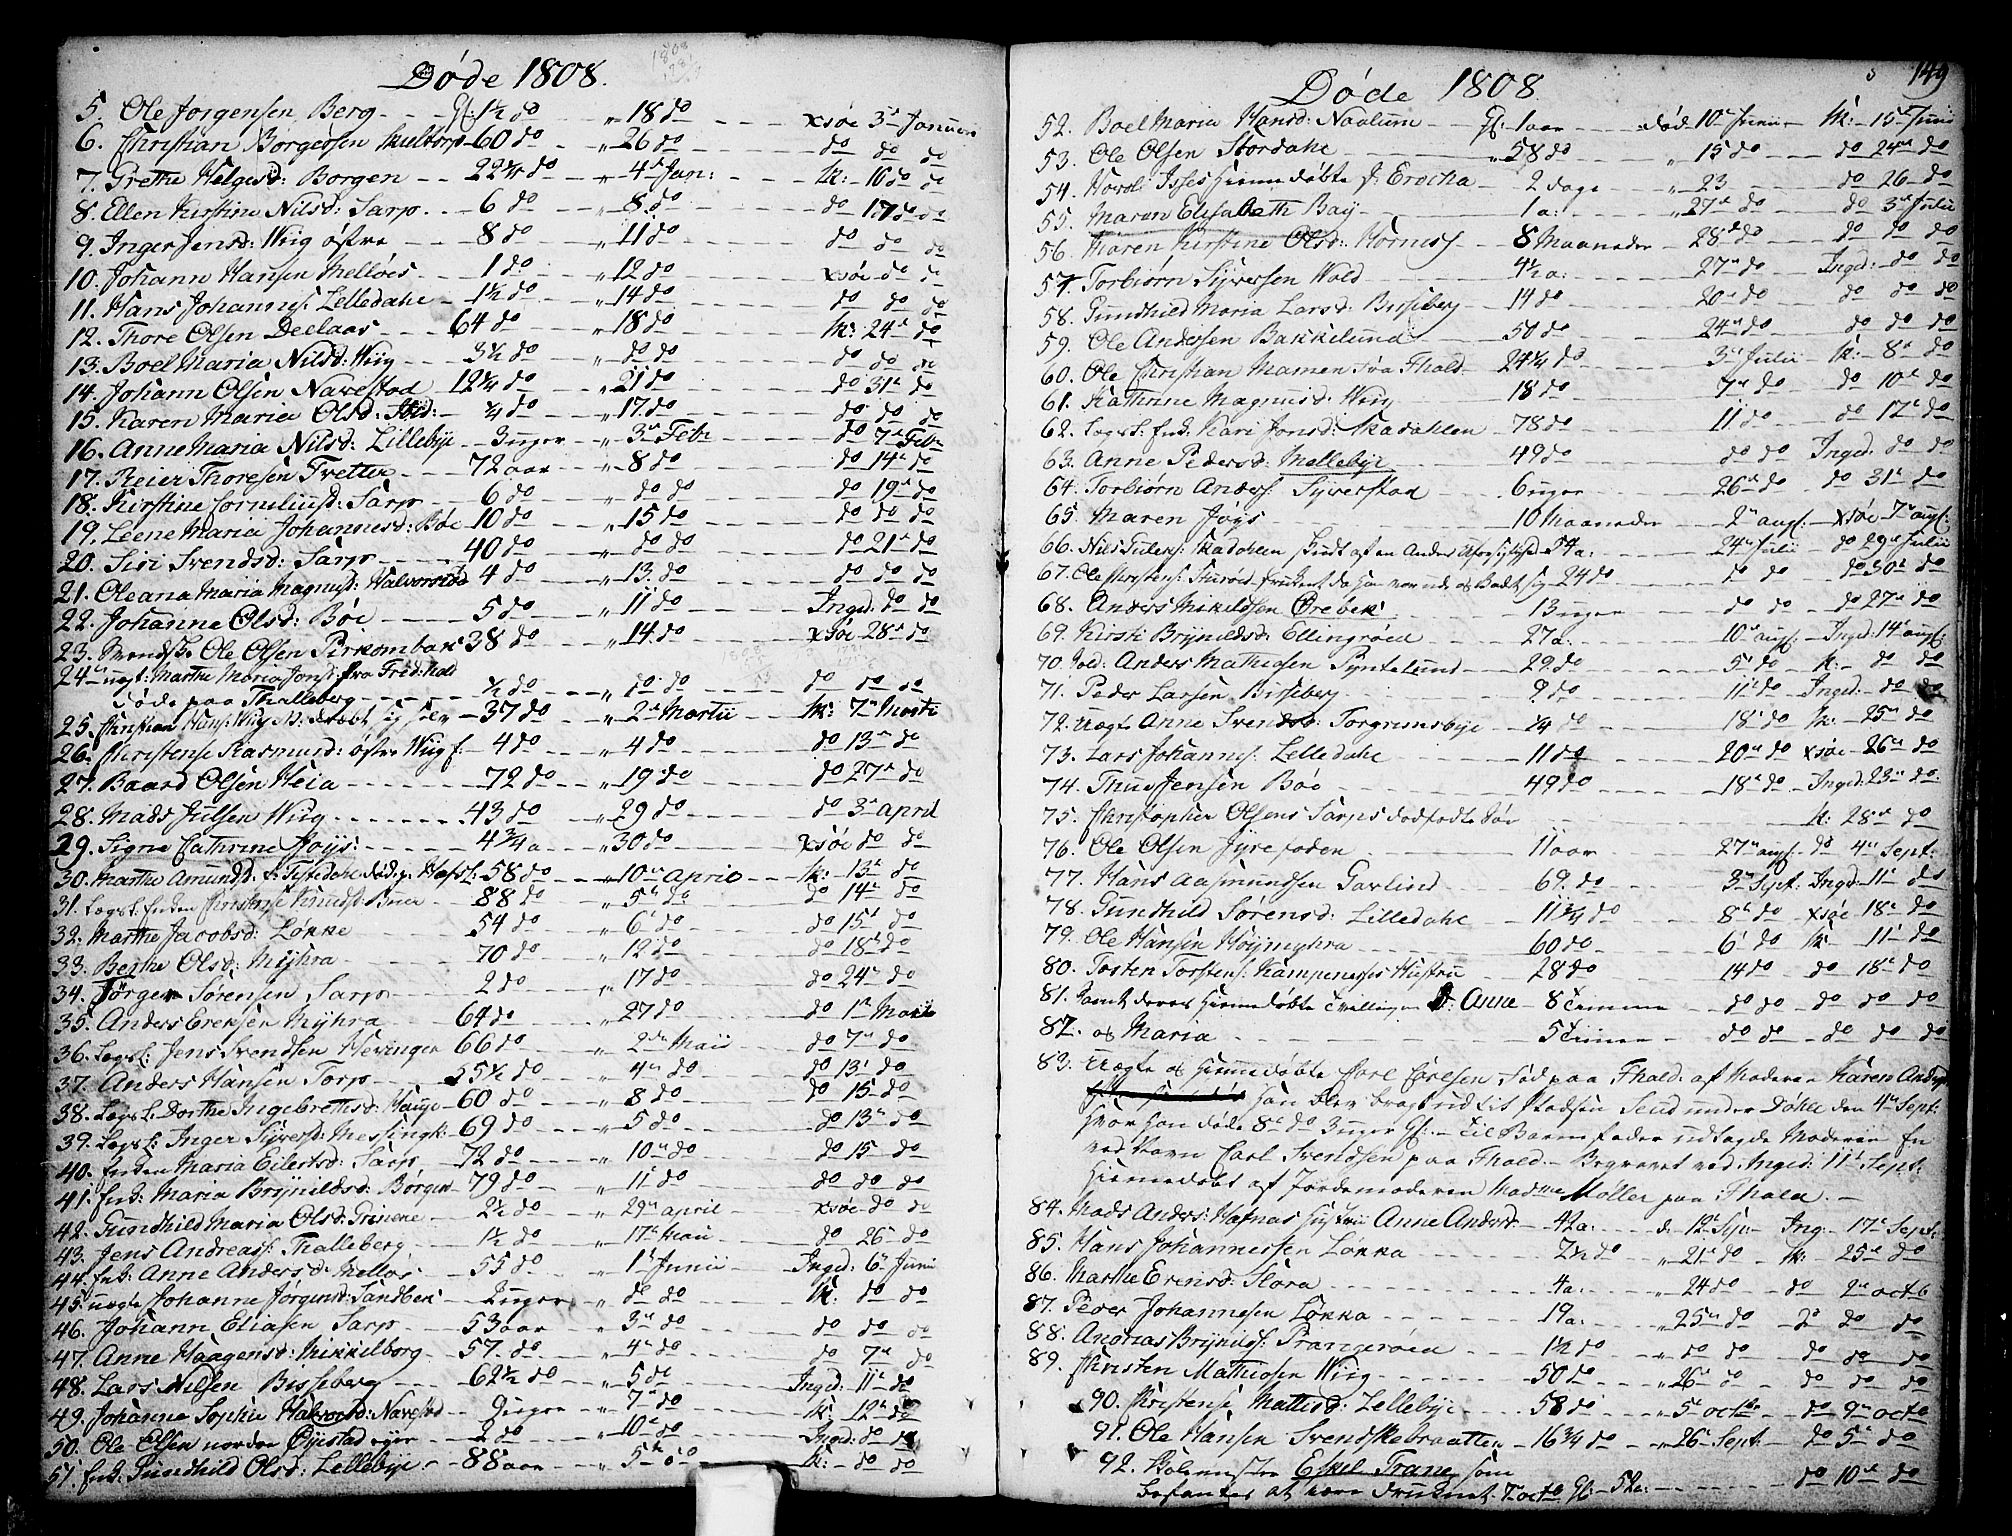 Døde 1808.
5. Ole Jorgensen Berg - - - Gl: 1½ do - - - " 18 do - - - xsøe 3d Januarii
6. Christian Børgersen - 60 do - - " 26 do - - - do do do
7. Grethe Helgesd: Borgen - - 22¼ do - - " 4d Jan: - - - K: 16 do do
8. Ellen Kirstine Nilsd: Sarp - - - 6 do - - - " 8 do - - - do 17 do do
9. Inger Jensd: Wiig østre - - - 8 do - - - " 11 do - - - do do do
10. Johann Hansen Melløes - - - 1 do - - - " 12 do - - - xsøe do do
11. Hans Johannes: Lilledahl - 1½ do - - - " 14 do - - - do do do
12. Thore Olsen Declaas - - - 64 do - - - " 18 do - - - K: 24d do
13. Boel Maria Nilsd: Wiig - - - 3½ do - - - " do do - - - do do do
14. Johann Olsen Navestad 12¼ do - - - " 21 do - - - do 31d do
15. Karen Maria Olsd: - ¼ do - - - " 17 do - - - do do do
16. Anne Maria Nilsd: Lillebye - 3 uger - - " 3d Febr - - - do 7d Febr
17. Reier Thoresen Tretter - - - 72 aar - - - " 8 do - - - do 14d do
18. Kirstine Corneliusd: Sarp - - - 6 do - - - " do do - - - do 19d do
19. Leene Maria Johannesd: Bøe 10 do - - - " 15 do - - - do do do
20. Siri Svendsd: Sarp - - - 40 do - - - " do do - - - do 21d do
21. Oleana Maria Magnusd: Halvorsrød 4 do - - - " 13 do - - - do do do
22. Johanne Olsd: Bøe - - - 5 do - - - " 11 do - - - Inged: do do
23. Ole Olsen Pirkombak 38 do - - - " 14 do - - - xsøe 28d do
24. uegt: Marthe Maria Jonsd: fra Fred:hald
døde paa Thalleberg - - - ½ do - - - " do do - - - do do do
25. Christian Hans: Wiig dræbt sig selv - 37 do - - - " 2d Martii - - - K: 7d Martii
26. Christense Rasmusd: østre Wiig - 4 do - - - " 4 do - - - do 13d do
27. Baard Olsen Heia - - - 72 do - - - " 19 do - - - do 27d do
28. Mads Julsen Wiig - - - 43 do - - - " 29 do - - - do 3d april
29. Signe Cathrine Høys: - - - 4¾ a - - - " 30 do - - - xsøe do do
30. Marthe Amundsd: f: Tistedahl død p: Hafsl: 58 do - - - " 10d April - - - K: 13d do
31. Lægsl: Enken Christense Knudsd: - - - 88 do - - - " 5d do - - - do 14d do
32. Marthe Jacobsd: Løkke - - - 54 do - - - " 6d do - - - do 15d do
33. Berthe Olsd: Myhra - - - 70 do - - - " 12 do - - - do 18d do
34. Jörgen Sørensen Sarp - - - 2 do - - - " 17 do - - - do 24d do
35. Anders Ericksen Myhra - - - 64 do - - - " 27 do - - - do 1d Maii
36. Lægsl: Jens Svendsen Hevinger 66 do - - - " 2d Maii - - - do 7d do
37. Anders Hansen Torp - - - 55½ do - - - " 4d do - - - do 13d do
38. Lægsl: Dorthe Ingebrettsd: Hauge - 60 do - - - " 8 do - - - do 15 do
39. Lægsl: Inger Syversd: Messingk: - 69 do - - - " 5 do - - - do 13d do
40. Enken Maria Eilertsd: Sarp - 72 do - - - " 10d do - - - do 15 do
41. Enk: Maria Brynildsd: Borgen - 79 do - - - " 11d do - - - do do do
42. Gundhild Maria Olsd: Grinene - 2½ do - - - " 29d april - - - xsøe do do
43. Jens Andreas: Thalleberg - 1½ do - - - " 17d Maii - - - do 26 do
44. Enk: Anne Andersd: Melløs - 55 do - - - " 1d Junii - - - Inged: 6d Junii
45. uegte Johanne Jörgensd: Sandbek 2 uger - - " do do - - - K: do do
46. Johann Eliasen Sarp - - - 53 aar - - - " 3d do - - - do do do
47. Anne Haagensd: Mikkilborg - 57 do - - - " 4d do - - - do 7d do
48. Lars Nilsen Bisseberg - - - 62½ do - - - " 5 do - - - Inged: 11d do
49. Johanne Sophie Halvorsd: Navestad - 9 uger - - " 7d do - - - K: 12d do
50. Ole Olsen nordre Øyestad - 2 do - - - " 10d do - - - Inged: do do
51. Enk: Gundhild Olsd: Lillebye - 88 aar - - - " 5d do - - - K: do do
Døde 1808
149
52. Boel Maria Hansd: Naalum - - Gl: 1 aar - - - død 10d Junii - K: 15d Junii
53. Ole Olsen Stordahl - - - " 58 do - - - " 15 do - - - do 24d do
54. hiemmedøbte d: Ericha - 2 dage - - " 23 - - - do 26 do
55. Maren Elisabeth Bay - - - 1 a: - - - " 27d do - - - do 3d Julii
56. Maren Kirstine Olsd: Hornes - 8 Maaneder - - 28d do - - - do do do
57. Torbiørn Syversen Wold - - - 4½ a: - - - 27d do - - - Inged: do do
58. Gundhild Maria Larsd: Bisseberg - 14 do - - - 20d do - - - do do do
59. Ole Andersen Bakkelund - - - 50 do - - - 24d do - - - do do do
60. Ole Christian Mamen fra Fhald - 24¼ do - - - 3d Julii - K: 8d do
61. Kathrine Magnusd: Wiig - - - 18 do - - - 7d do - - - do 10d do
62. Lægsl: Enk: Kari Jonsd: Skadahlen - 78 do - - - 11 do - - - do 12d do
63. Anne Pedersd: Mellebye - - - 49 do - - - do do Inged: do do
64. Torbiørn Anders: Syverstad - - 6 uger - - - 26d do - do 31d do
65. Maren Joys - - - 10 Maaneder - - 2d augs: - xsøe 7d augs:
66. Nils Skadahlen skudt af en Anders Uforsigtighed 54 a: - 24d Julii - do 29d Julii
67. Ole Christens: druknet da han var ude at Badet sig - 24 do - - - do do - do 30d do
68. Anders Mikelssen Ørebek - - - 13 uger - - - do do - do 27d do
69. Kirsti Brynildsd: Ellingrøed - 27 a: - - - 10d augs: - Inged: 14d augs:
70. Sold: Anders Mathiesen Pyntelund - 29 do - - - 5d do - K: do do
71. Peder Larsen Bisseberg - - - 9 do - - - 11d do Inged: do do
72. uegte Anne Svendsd: Torgrimsbye - ¼ do - - - 18d do - K: 25d do
73. Lars Johannes: Lilledahl - - - 11 do - - - 20d do xsøe 26d do
74. Thue Jensen Bøe - - - 49 do - - - 18d do Inged: 23d do
75. Christopher Olsens Sarps dødfødte Søn - - - K: 28d do
76. Ole Olsen foden - - - 11 aar - - - 27d augs: do 4d Sept:
77. Hans Aasmundsen Gavlund - - - 69 do - - - 3d Sept: Inged: 11d do
78. Gundhild Sørensd: Lilledahl - 11¾ do - - - 8d do xsøe 18d do
79. Ole Hansen Høymyhra - - - 60 do - - - 6d do K: 11d do
80. Tosten Torstens: Kampenesses Hustru - 28 do - - - 14 do - do 18d do
81. Samt deres hiemmedøbte Tvillinger d: Anne - 8 Timme - - - do do do do do
82. og Maria - - - 5 Timer - - - do do - do do do
83. Uægte og hiemmedøbte Carl Carlsen Fød paa Fhald: af Moderen Karen Andersd:
han blev bragt ud til Pladsen under Dahle den 4d Sept:
hvor han døde 8d do 3 uger Gl: - Til Barne fader udlagde Moderen En
ved Navn Carl Svendsen paa Fhald - Begravet ved Inged: 11d Sept:
Hiemedøbt af Jordemoderen Madme Møller paa Fhald. -
84. Mads Anders: Hafnas Hustru Anne Andersd: - 42 a: - - d: 12d Sep: - Ing: 17d Sept:
85. Hans Johannessen Løkka - - - 7½ do - - " 21d do - K: 25d do
86. Marthe Erensd: Flora - - - 4 a: - - - " 24 do - do 2d octb
87. Peder Johannesen Løkka - - - 19 a: - - - " 25d do - do do do
88. Andreas Brynilds: Prangerøed - 1½ do - - - " do do - do do do
89. Christen Mathiesen Wiig - - - 50 do - - - " 26d do - do do do
90. Christense Mattisd: Lellebye - - 58 do - - - " 5d octb - do 9d octb
91. Ole Hansen Svendskebraatten - 16¾ do - - - " 26d Sept: - do 5d do
92. Eskel Trane som
befandtes at være druknet 7d octb Gl: 52 a: - - - do 10d do